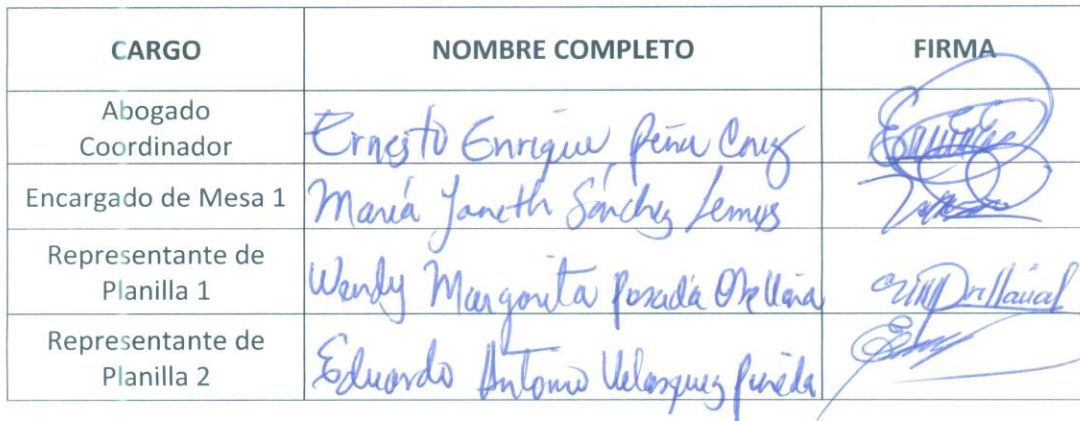 CARGO NOMBRE COMPLETO FIRMA
Abogado
Coordinador
Ernesto Enrique Peña Cruz
Encargado de Mesa 1 María Janeth Sánchez Lemus
Representante de
Planilla 1
Wendy Margarita Posada Orellana
Representante de
Planilla 2
Eduardo Antonio Velasquez Pineda